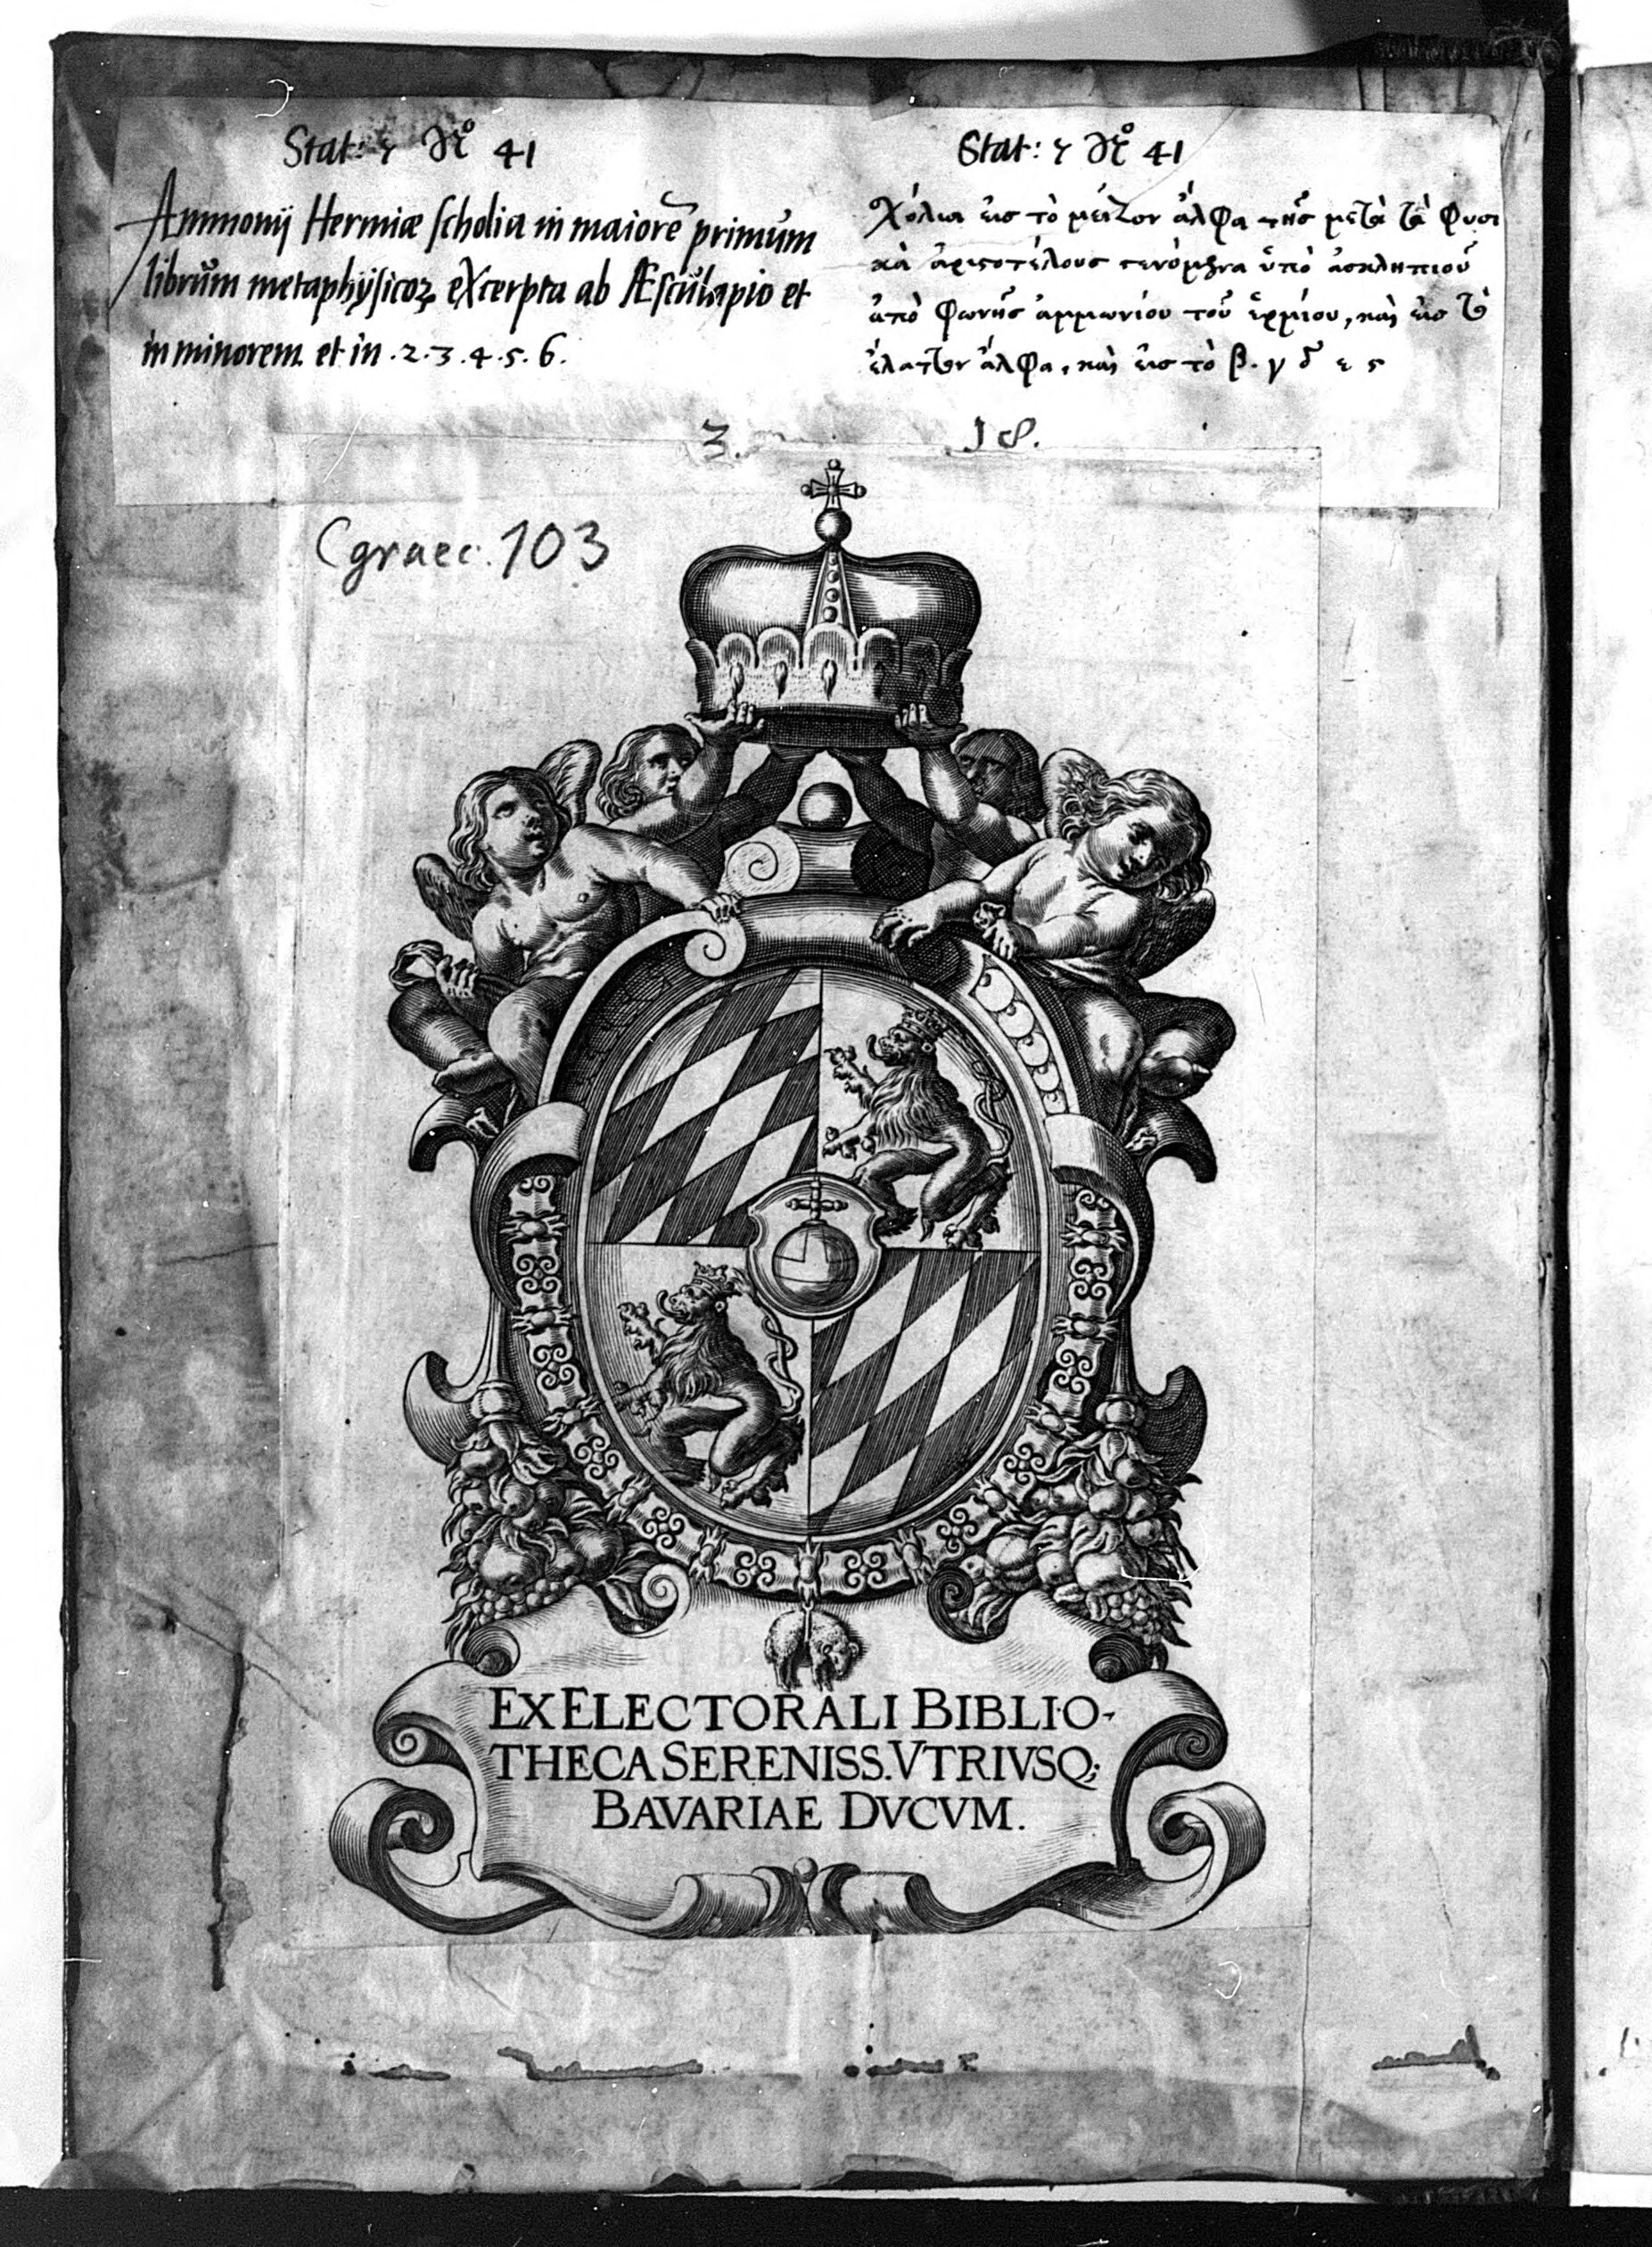 Stat: N° 41
Ammonij Hermiæ scholia in maiorē primum
librum metaphÿsicoꝝ eXcerpta ab Æsculapio et
in minorem et in .2.3.4.5.6.
Stat: N° 41
χόλια εἰς τὸ μεῖζον ἄλφα τῆς μετὰ τὰ φυσι
κὰ ἀριστοτέλους γενόμενα ὑπὸ ἀσκληπιοῦ
ἀπὸ φωνῆς ἀμμωνίου τοῦ ἑρμίου, καὶ εἰς τὸ
ἔλαττον ἄλφα, καὶ εἰς τὸ β. γ δ ε ϛ
3. 18.
Cgraec. 103
EX ELECTORALI BIBLIO-
THECA SERENISS. VTRIVSQ;
BAVARIAE DVCVM.